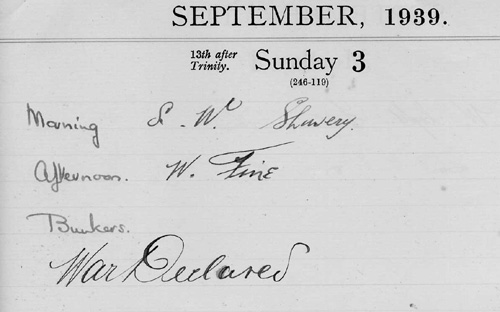 SEPTEMBER, 1939.
13th after Trinity. Sunday 3
(246-119)
Morning S. W. Showery.
Afternoon. W. Fine
Bunkers.
War Declared